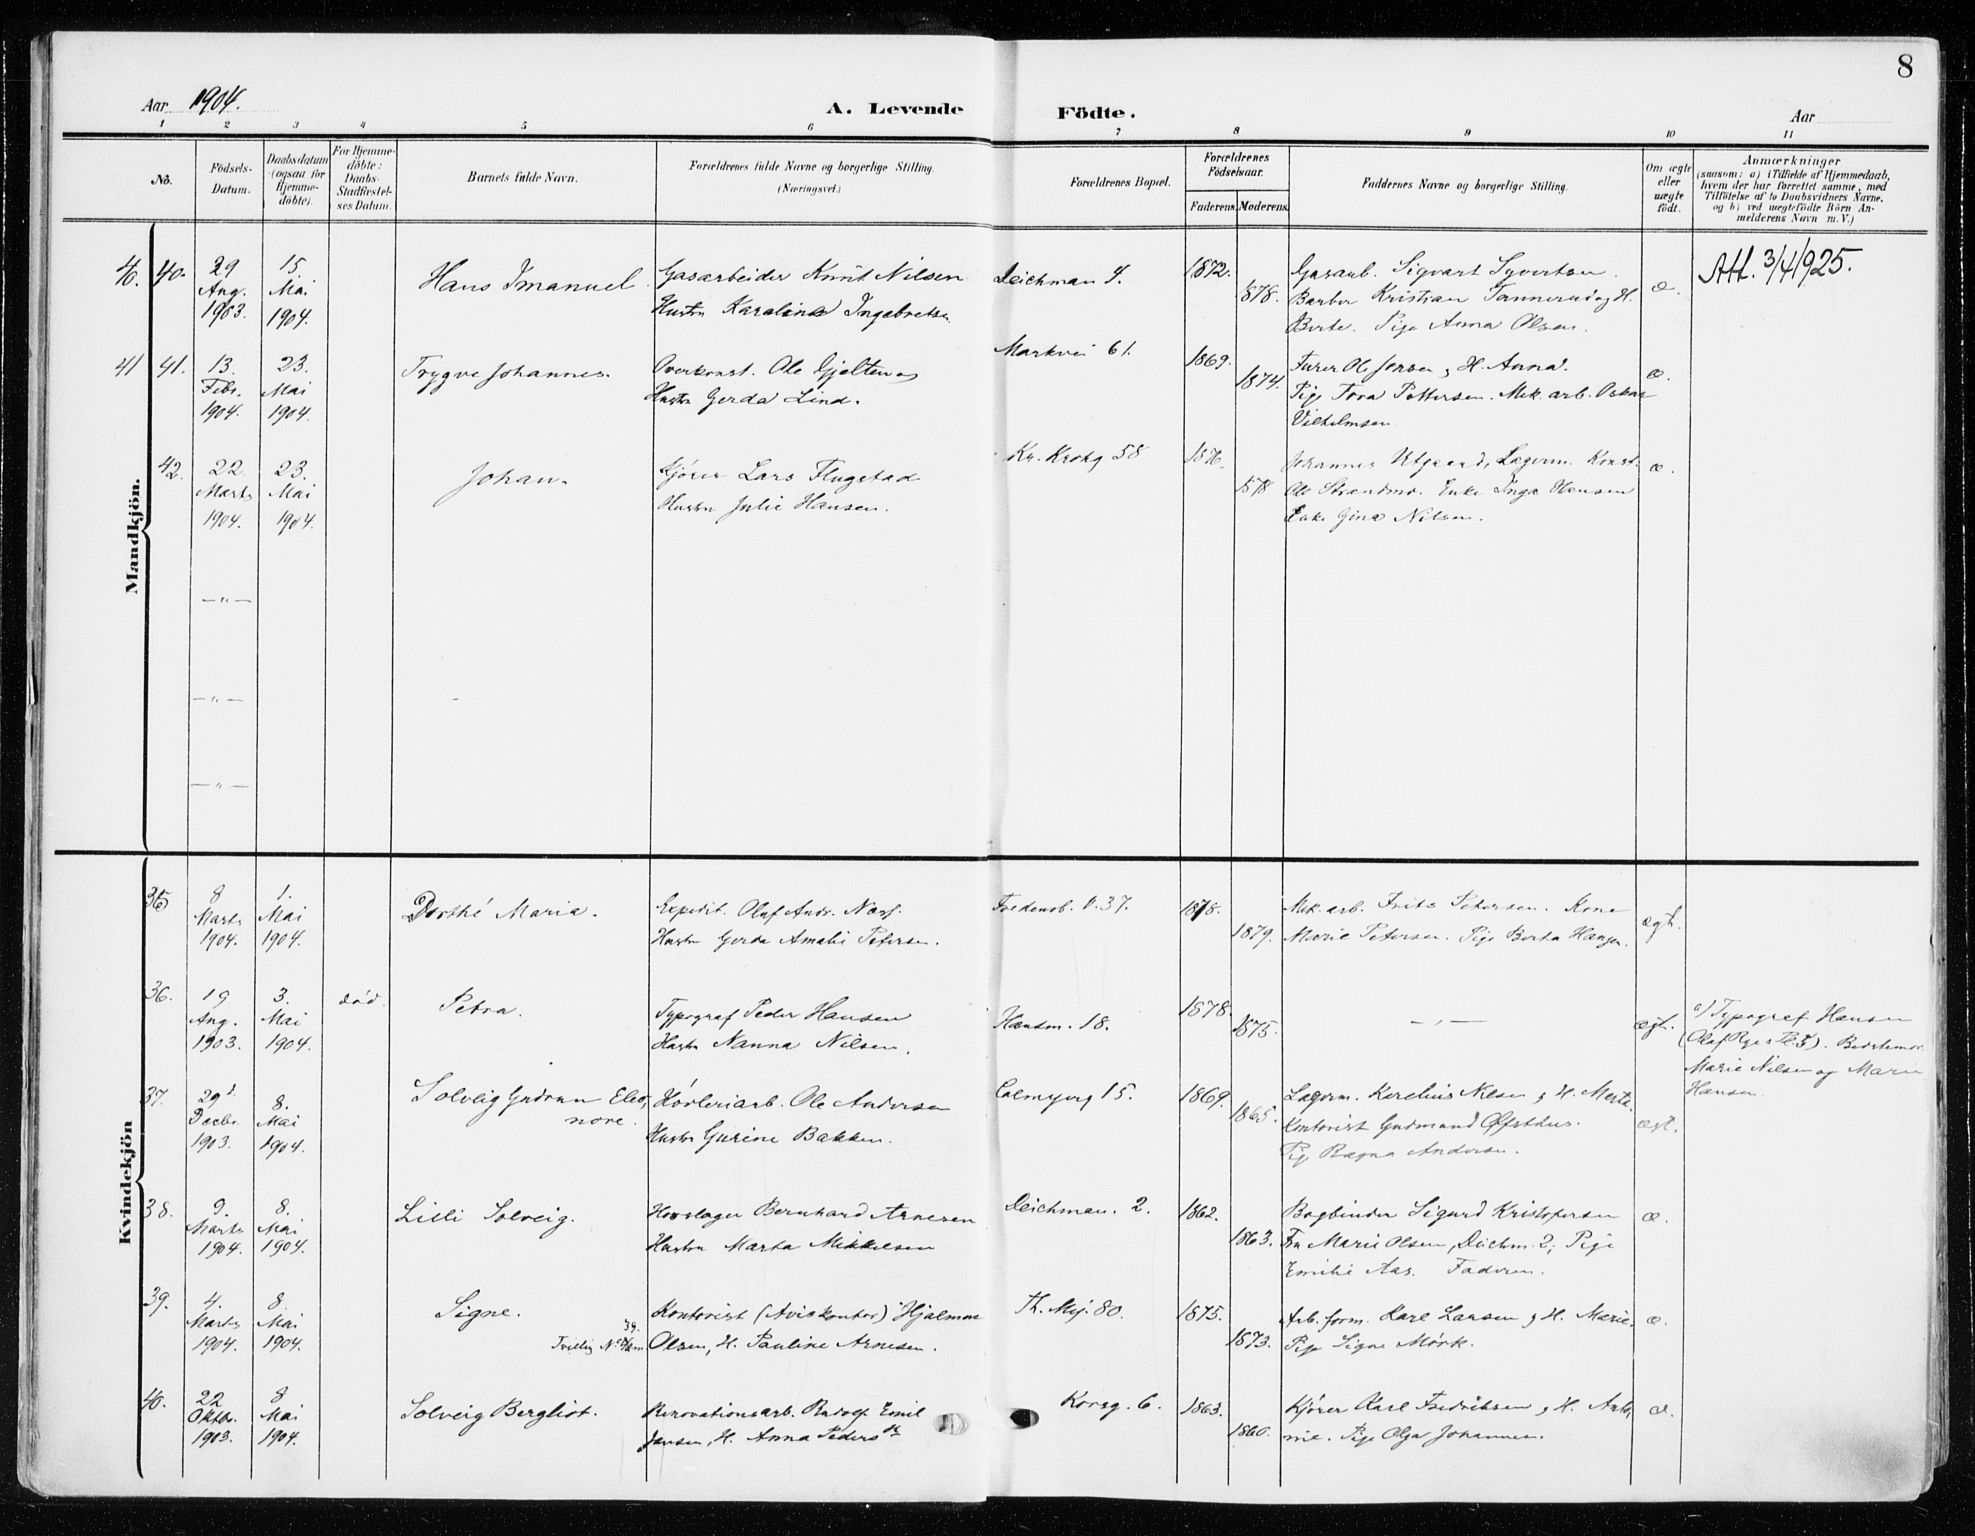 8
Aar 1904. A. Levende Födte. Aar
1 2 3 4 5 6 7 8 9 10 11
No.
Födsels-
Datum.
Daabsdatum
(ogsaa for
Hjemme-
döbte).
For Hjemme-
döbte:
Daabs-
Stadfæstel-
ses Datum.
Barnets fulde Navn.
Forældrenes fulde Navne og borgerlige Stilling.
(Næringsvei.)
Forældrenes Bopæl.
Forældrenes
Födselsaar.
Faderens. Moderens.
Faddernes Navne og borgerlige Stilling.
Om ægte
eller
uægte
födt.
Anmærkninger
(saasom: a) i Tilfælde af Hjemmedaab,
hvem der har forrettet samme, med
Tilföielse af to Daabsvidners Navne.
og b) ved uægtefödte Börn An-
melderens Navn m. V.)
Mandkjön.
40. 40.
29
Aug.
1903.
15.
Mai
1904.
Hans Imanuel
Gasarbeider Knut Nilsen
Hustru Karoline Ingebretsen
Deichman 4.
1872.
1878.
Gasarb. Sigvart Syvertsen
Barber Kristian Tannerud og H.
Berte. Pige Anna Olsen.
æ.
Att. 3/4 1925.
41 41.
13.
Febr.
1904.
23.
Mai
1904.
Trygve Johannes.
Overkonst. Ole Gjelten og
Hustru Gerda Lind.
Markvei 61.
1869.
1874.
Furer Ol Jensen og H. Anna.
Pige Tora Pettersen. Mek. arb. Oskar
Vilhelmsen
æ.
42.
22
Marts
1904.
23.
Mai
1904.
Johan.
Kjører Lars Flugstad
Hustru Julie Hansen.
Kr. Krohg 58
1876
1878
Johannes Utgaard, Lagerm. Konst.
Ole Strandmo. Enke Inga Hansen
Enke Gina Nilsen.
æ.
— " —
— " —
— " —
Kvindekjön
35
8
Marts
1904.
1.
Mai
1904.
Dorthé Maria.
Expedit. Oluf Andr. Næss.
Hustru Gerda Amalie Petersen.
Fredensb. v. 37.
1878.
1879.
Mek. arb. Frits Petersen. Kone
Marie Petersen. Pige Berta Hansen.
ægt.
36.
19
Aug.
1903.
3.
Mai
1904.
død.
Petra.
Typograf Peder Hansen
Hustru Nanna Nilsen.
Hausm. 18.
1878.
1875.
— " —
ægt.
a) Typograf Hansen
(Olaf Ryes Pl. 5). Bedstemor
Marie Nilsen og Marie
Hansen.
37.
29d
Decbr.
1903.
8.
Mai
1904.
Solveig Gudrun Eleo,
nore.
Høvleriarb. Ole Andersen
Hustru Gurine Bakken.
Calmeyerg 15.
1869.
1865.
Lagerm. Karelius Nilsen og H. Marta.
Kontorist Gudmund Øfsthus.
Pige Ragna Andersen.
ægt.
38.
9.
Marts
1904.
8.
Mai
1904.
Lilli Solveig.
Hovslager Bernhard Arnesen
Hustru Marta Mikkelsen
Deichman. 2.
1862.
1863.
Bogbinder Sigurd Kristofersen
Fru Marie Olsen, Deichm. 2; Pige
Emilie Aas. Faderen.
æ.
39.
4.
Marts
1904.
8.
Mai
1904.
Signe.
Tvilling No 39.
Kontorist (Aviskontor) Hjalmar
Olsen, H. Pauline Arnesen.
Th. Mej. 80.
1875.
1873.
Arb. form. Karl Larsen og H. Marie.
Pige Signe Mørk.
æ.
40.
22
Oktbr.
1903.
8
Mai
1904.
Solveig Bergliot.
Renovationsarb. Rudolf Emil
Jensen, H. Anna Pedersdr.
Korsg. 6.
1863.
1860.
Kjører Karl Fredriksen og H. Anto,
nie. Pige Olga Johannesen.
æ.